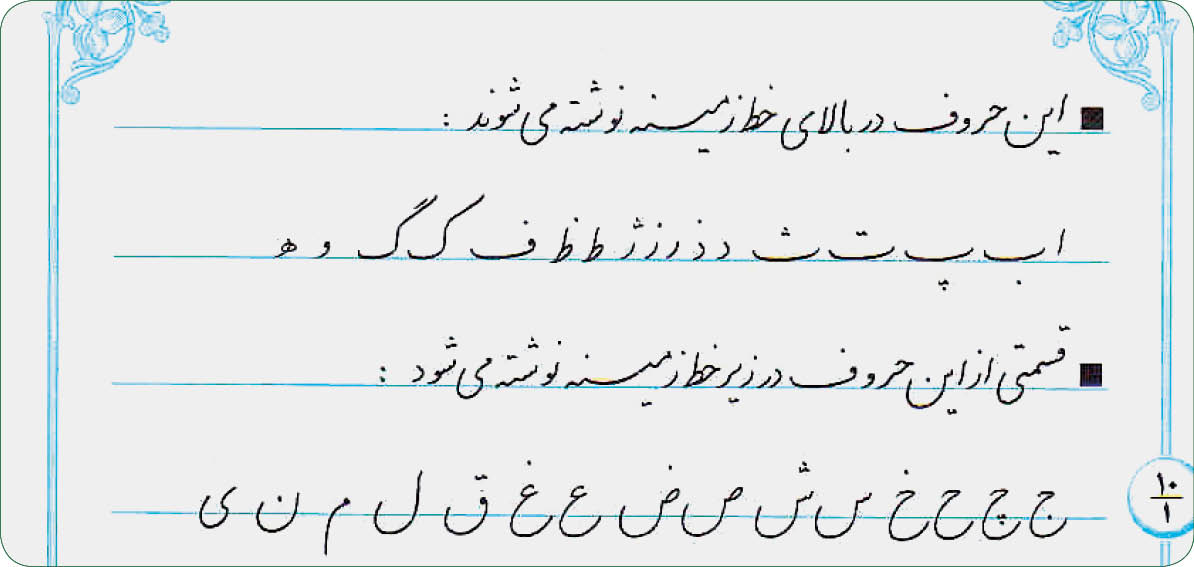 ■ این حروف در بالای خط زمینه نوشته می شوند :
ا ب پ ت ث د ذ ر ز ژ ط ظ ف ک گ و ه
■ قسمتی از این حروف در زیر خط زمینه نوشته می شود :
ج چ ح خ س ش ص ض ع غ ق ل م ن ی
۱۰
۱